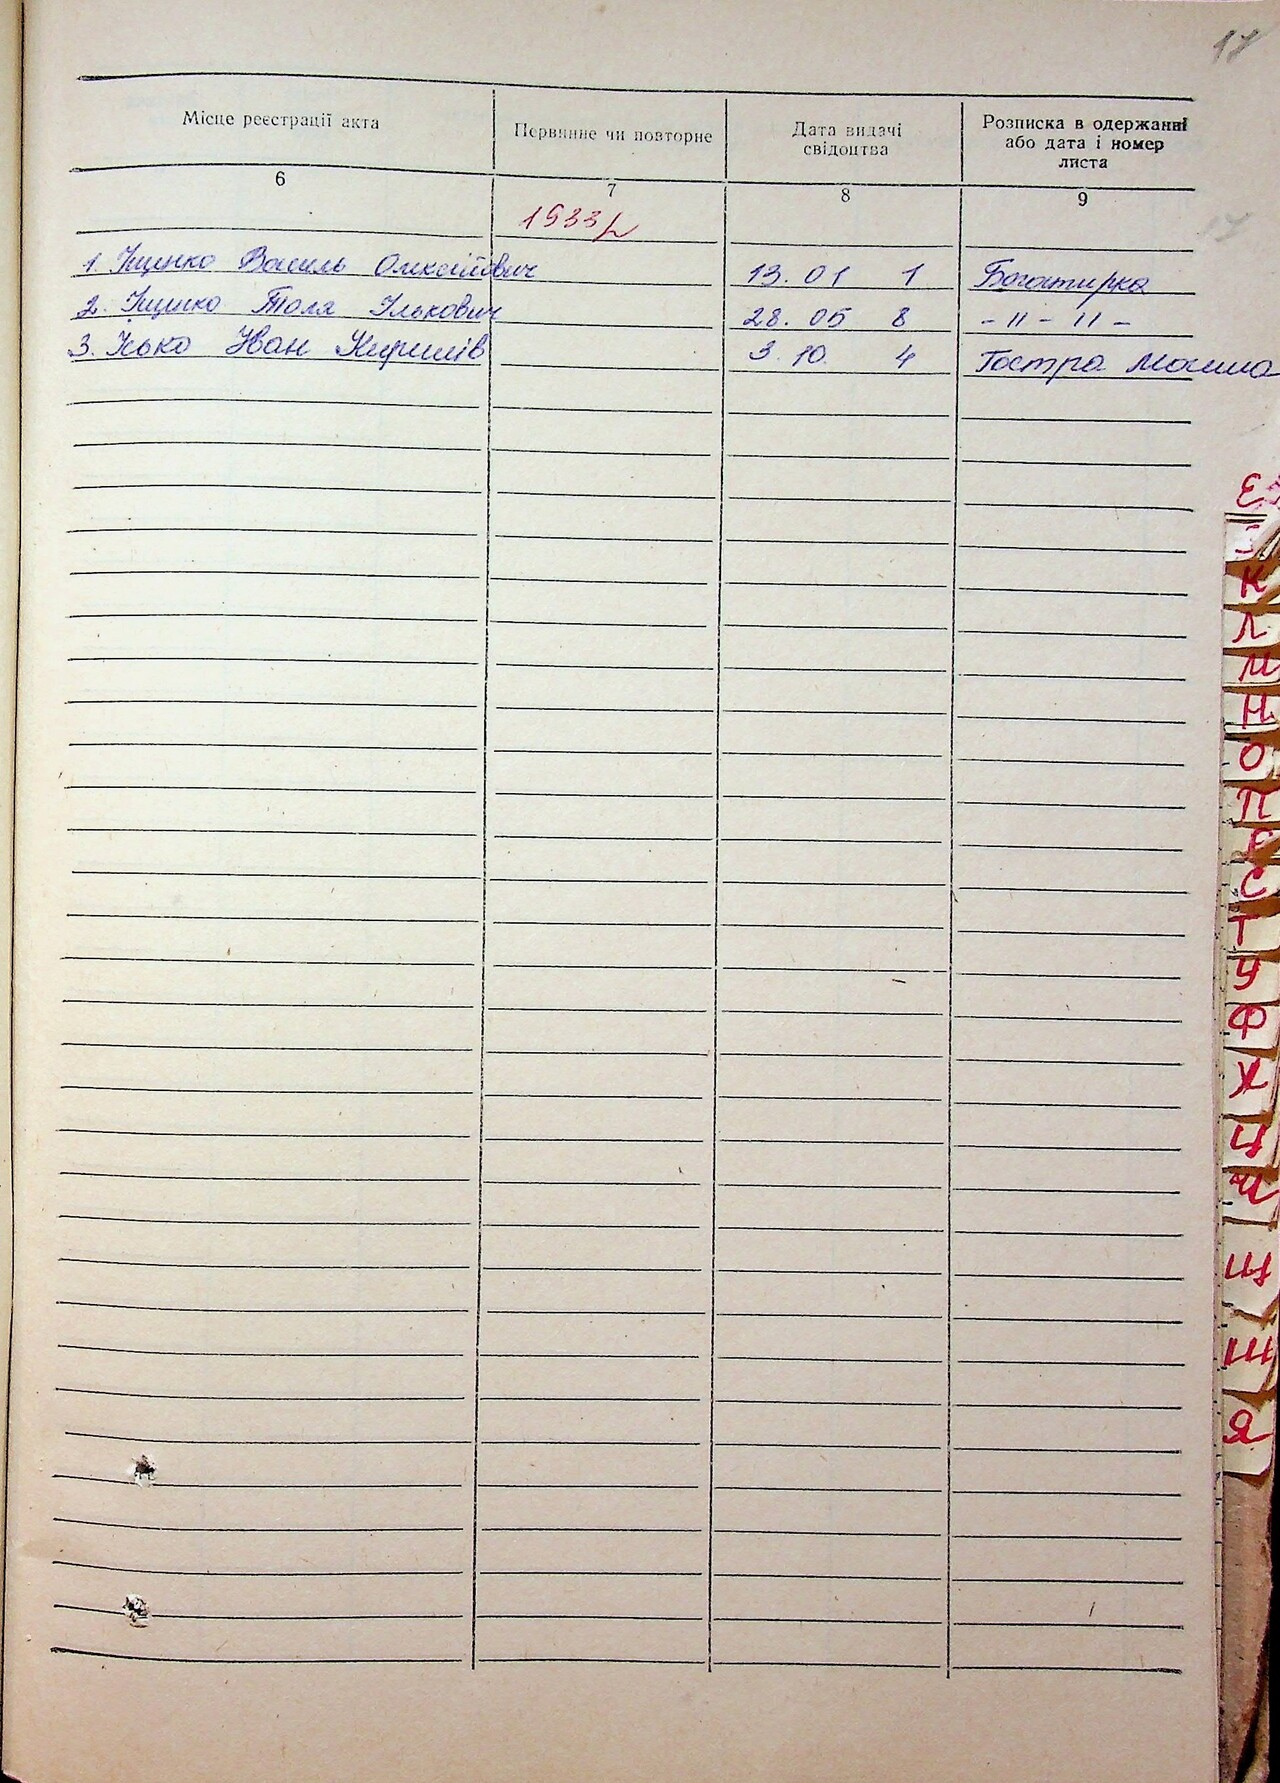 17
Місце реєстрації акта Первинне чи повторне Дата видачі свідоцтва Розписка в одержанні або дата і номер листа
6 7 8 9
1933р
17
1. Іщенко Василь Олексійович 13. 01 1 Богатирка
2. Іщенко Толя Ількович 28. 05 8 - " - " -
3. Ісько Іван Кирилів 3. 10. 4 Гостра Могила
Е
К
Л
М
Н
О
П
Р
С
Т
У
Ф
Х
Ц
Ч
Щ
Ш
Я